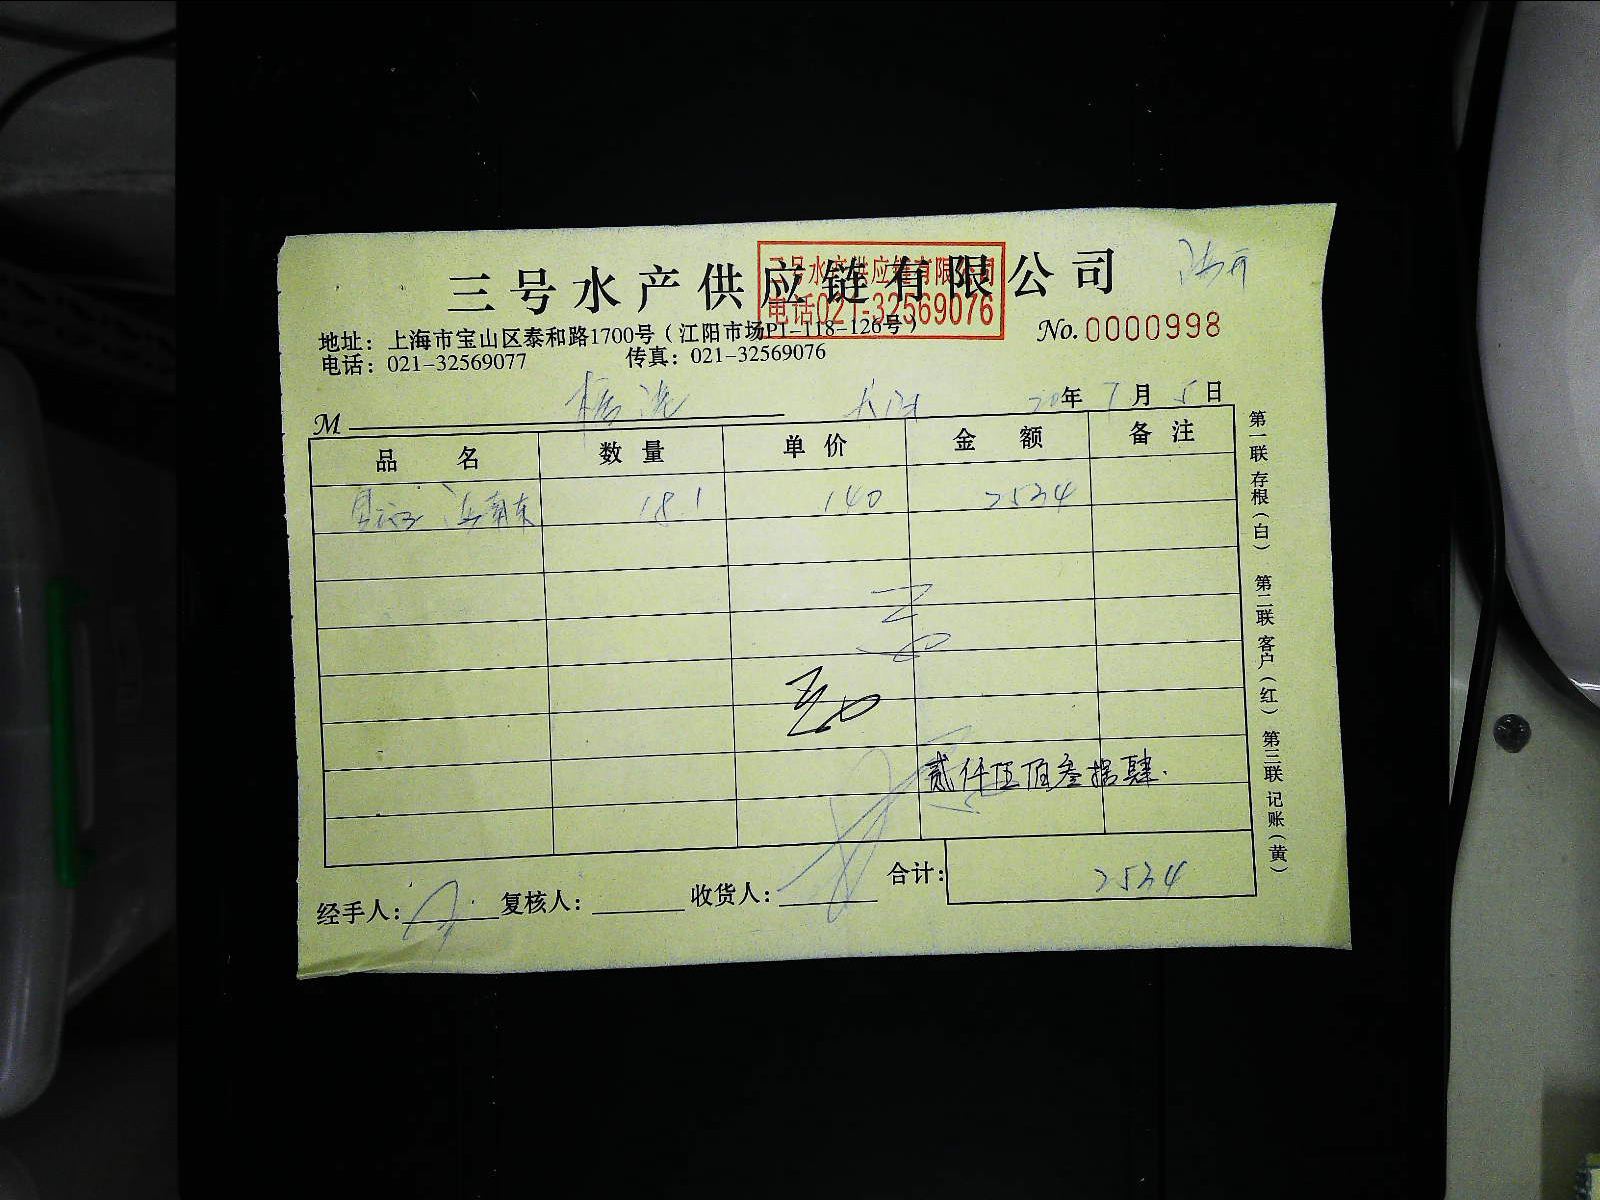 三号水产供应链有限公司
三号水产供应链有限公司
电话021-32569076
地址：上海市宝山区泰和路1700号（江阳市场P1-118-126号）
No. 0000998
电话：021-32569077 传真：021-32569076
M 20年 7月 5日
品名 数量 单价 金额 备注
18.1 140 2534
贰仟伍佰叁拾肆.
合计： 2534
经手人： 复核人： 收货人：
第一联 存根（白） 第二联 客户（红） 第三联 记账（黄）